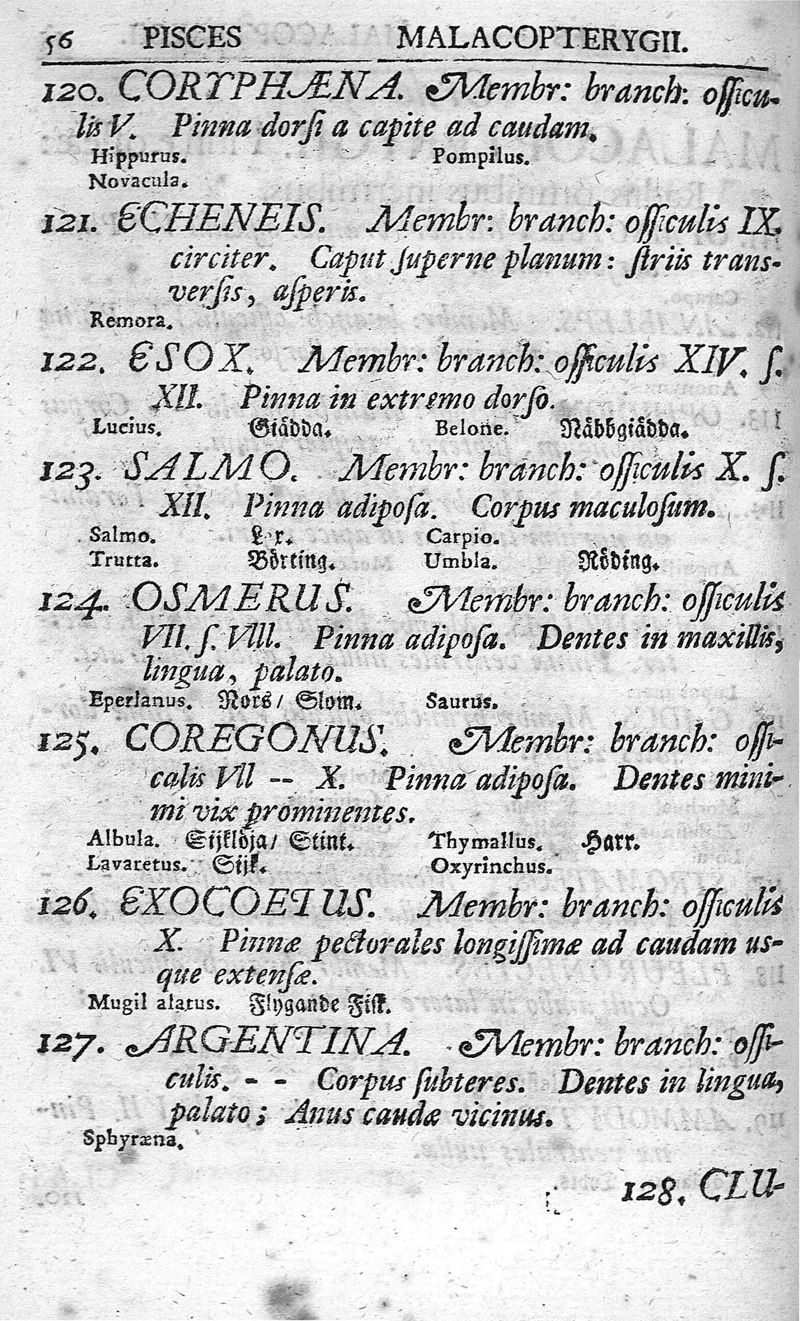 56 PISCES MALACOPTERYGII.
120. CORYPHÆNA. Membr: branch: oſſicu-
lis V. Pinna dorſi a capite ad caudam.
Hippurus. Pompilus.
Novacula.
121. ECHENEIS. Membr: branch: oſſiculis IX.
circiter. Caput ſuperne planum: ſtriis trans-
verſis, aſperis.
Remora.
122. ESOX. Membr: branch: oſſiculis XIV. ſ.
XII. Pinna in extremo dorſo.
Lucius. Giädda. Belone. Näbbgiädda.
123. SALMO. Membr: branch: oſſiculis X. ſ.
XII. Pinna adipoſa. Corpus maculoſum.
Salmo. Carpio.
Trutta. Börting. Umbla. Röding.
124. OSMERUS. Membr: branch: oſſiculis
VII. ſ. VIII. Pinna adipoſa. Dentes in maxillis,
lingua, palato.
Eperlanus. Nors/ Slom. Saurus.
125. COREGONUS. Membr: branch: oſſi-
calis VII -- X. Pinna adipoſa. Dentes mini-
mi vix prominentes.
Albula. Sijklöja/ Stint. Thymallus. Harr.
Lavaretus. Sijk. Oxyrinchus.
126. EXOCOETUS. Membr: branch: oſſiculis
X. Pinnæ pectorales longiſſimæ ad caudam us-
que extenſæ.
Mugil alatus. Flygande Fiſk.
127. ARGENTINA. Membr: branch: oſſi-
culis. - - Corpus ſubteres. Dentes in lingua,
palato; Anus caudæ vicinus.
Sphyræna.
128. CLU-